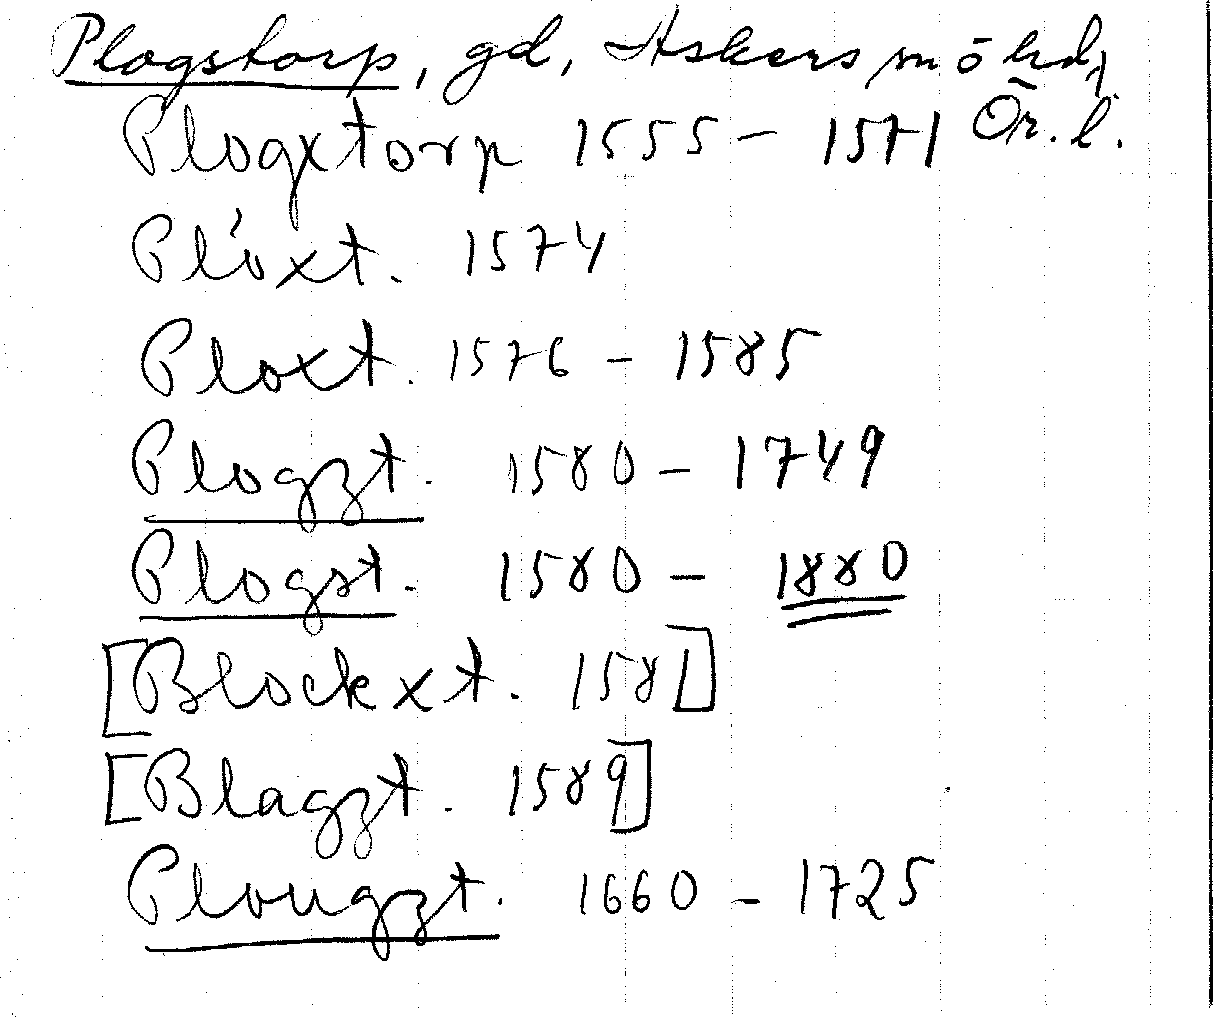 Plogstorp, gd, Askers sn ö hd,
Ör. l.
Plogxtorp 1555 – 1571
Plóxt. 1574
Ploxt. 1576 – 1585
Plogzt. 1580 – 1749
Plogst. 1580 – 1880
[Blockxt. 1581]
[Blagzt. 1589]
Plougzt. 1660 – 1725